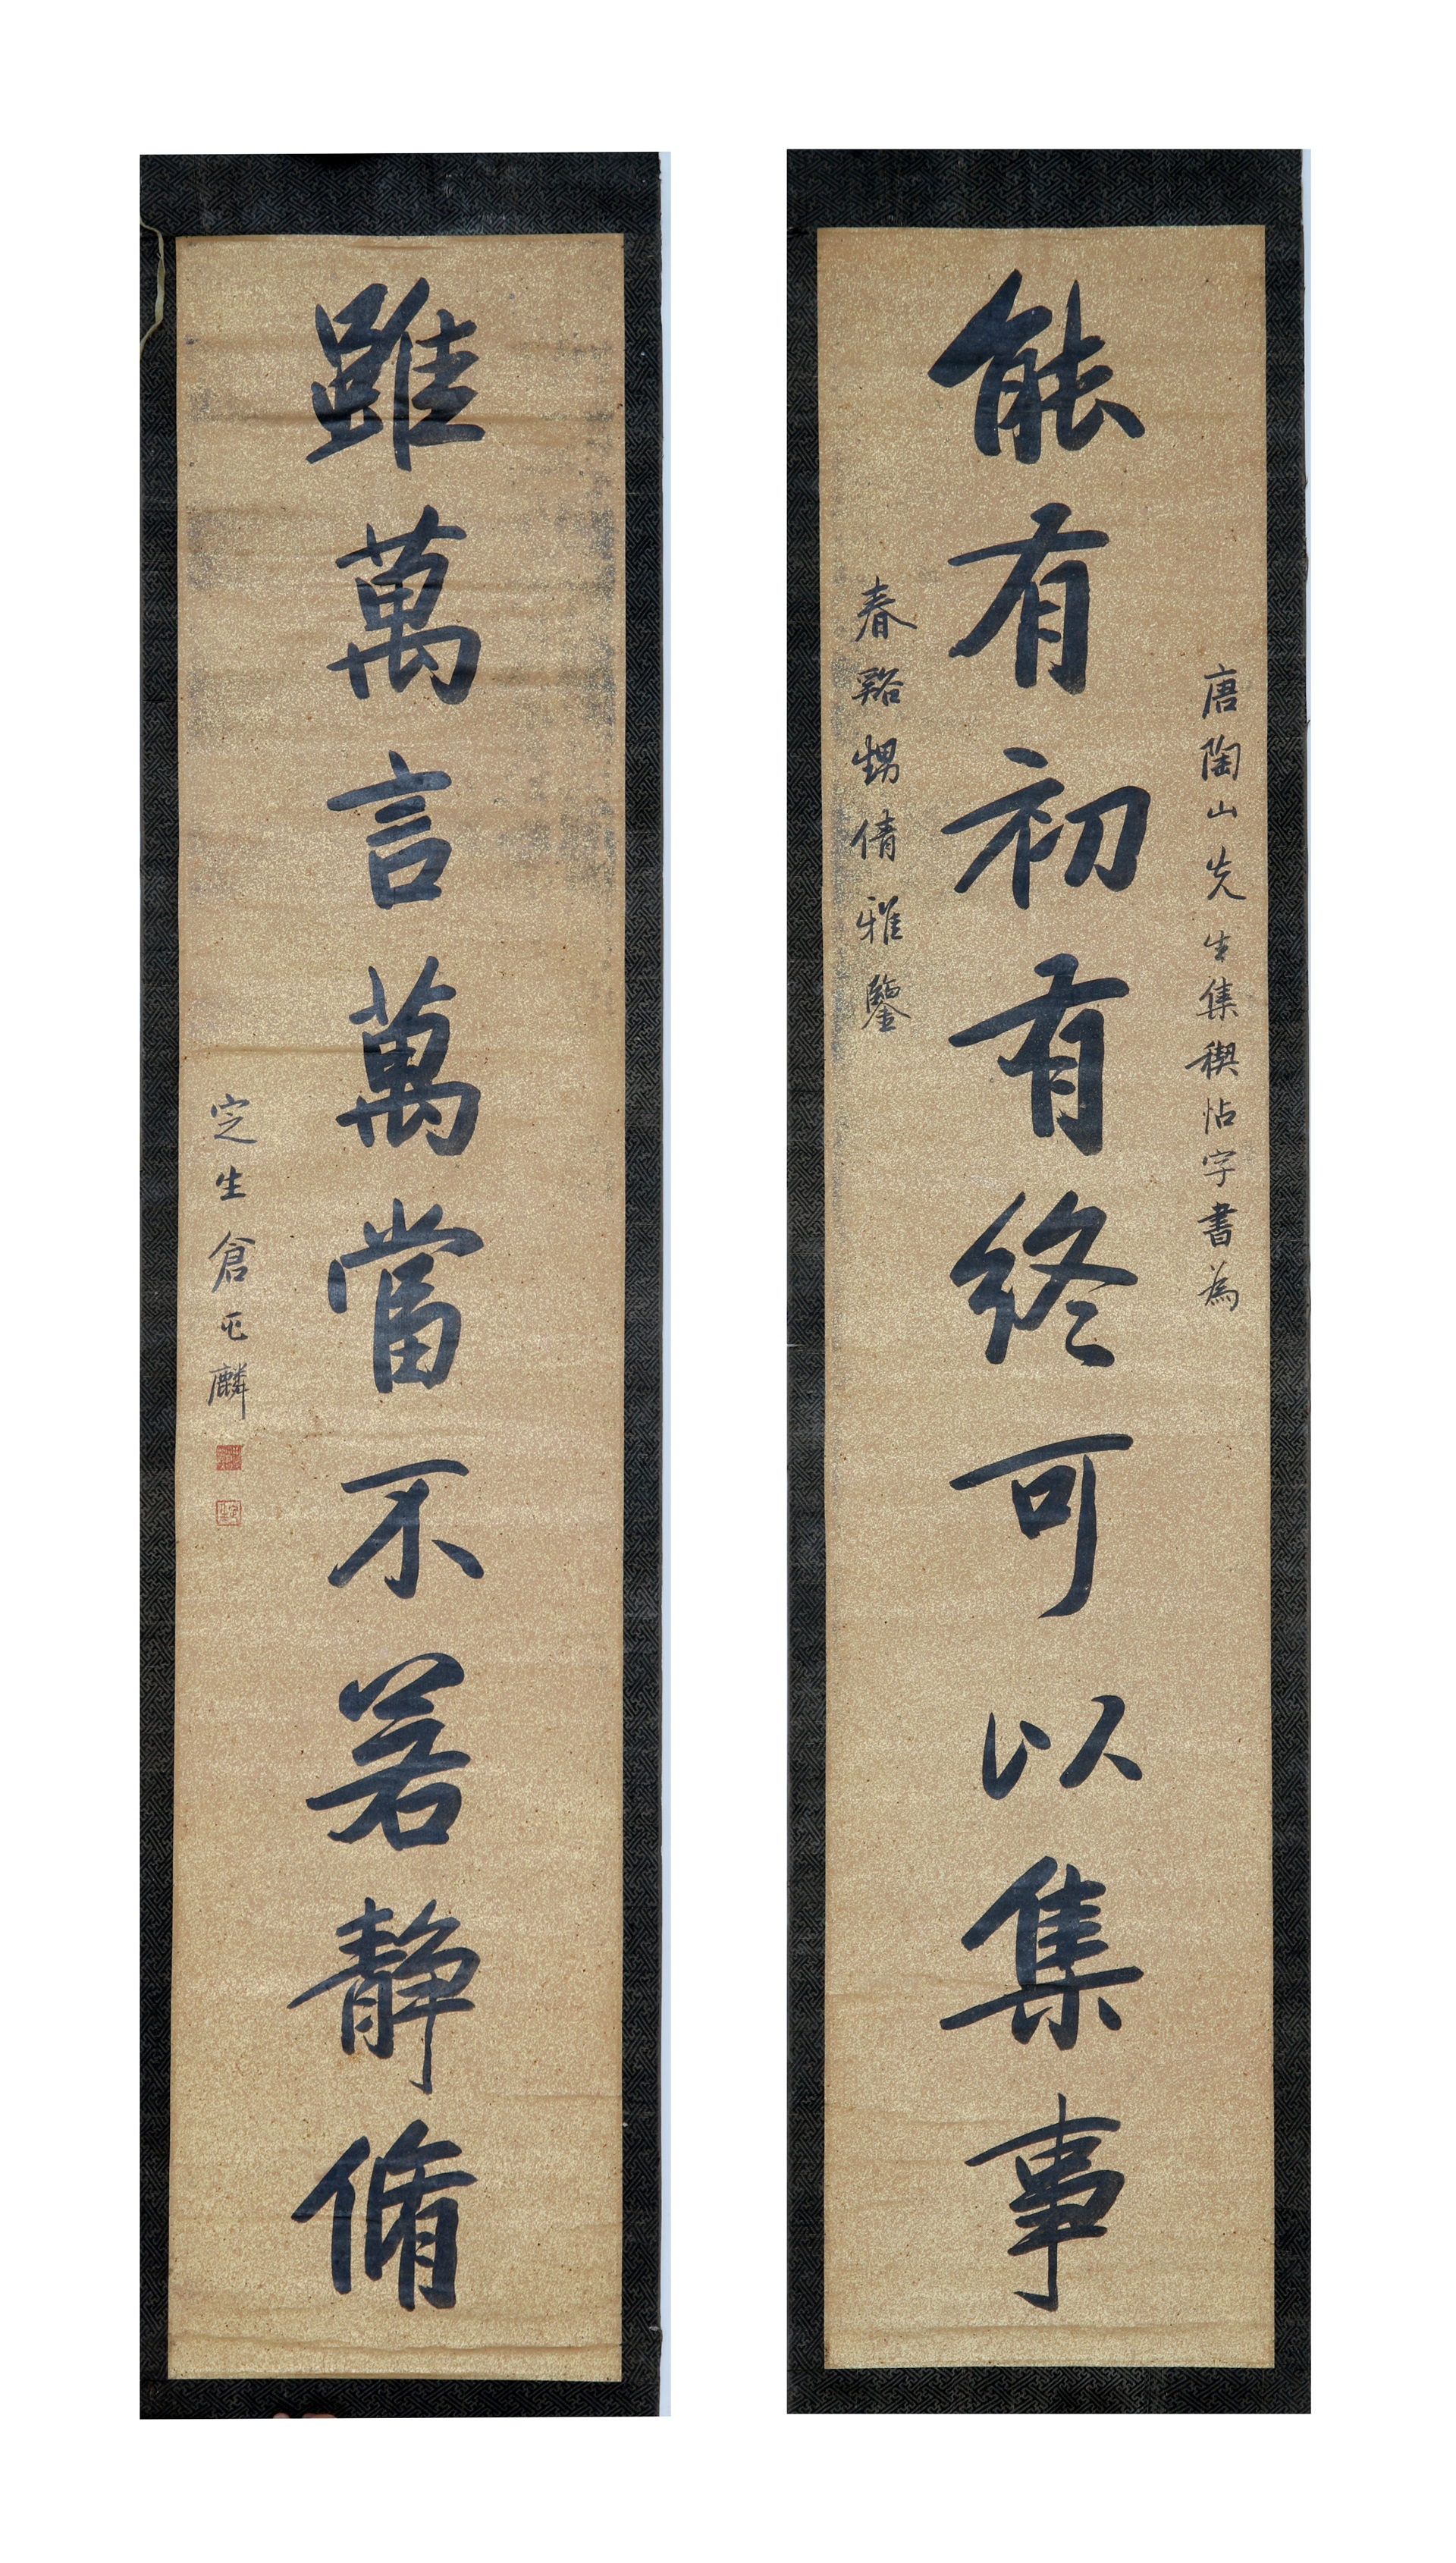 能有初有終可以集事
唐陶山先生集稧帖字書為
春谿甥倩雅鑒
雖萬言萬當不若静脩
定生倉
麟